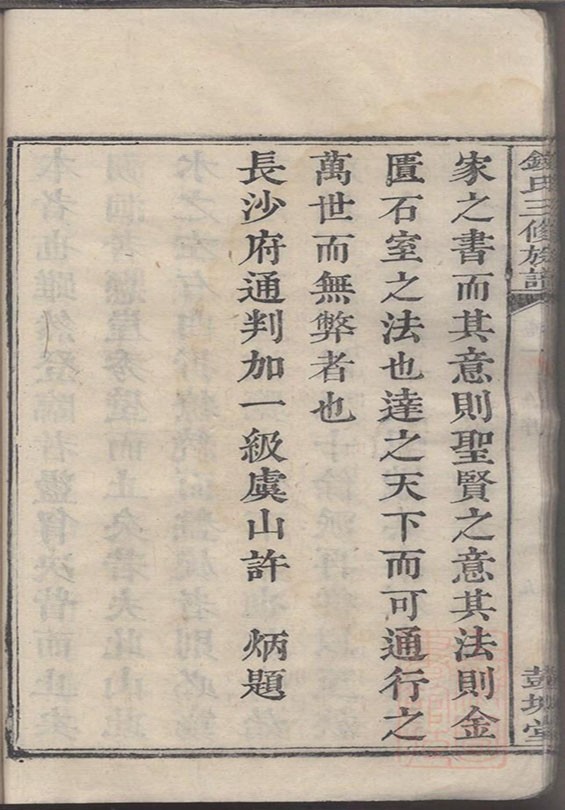 錢氏三修族譜
彭城堂
家之書而其意則聖賢之意其法則金
匱石室之法也達之天下而可通行之
萬世而無弊者也
長沙府通判加一級虞山許　炳題